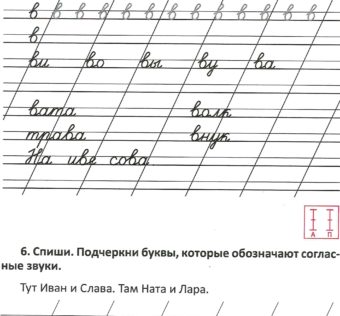 в в в в в в в в в в в в в
в
ви во вы ву ва
вата волк
трава внук
На иве сова.
А П
6. Спиши. Подчеркни буквы, которые обозначают соглас-
ные звуки.
Тут Иван и Слава. Там Ната и Лара.